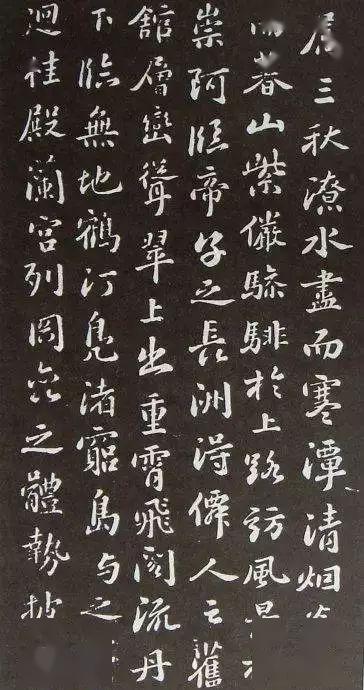 三秋潦水盡而寒潭清烟
暮山紫儼驂騑於上路訪風
崇阿臨帝子之長洲得僊人之舊
舘層巒聳翠上出重霄飛閣流丹
下臨無地鶴汀鳧渚窮島与之
迴桂殿蘭宮列岡巒之體勢披